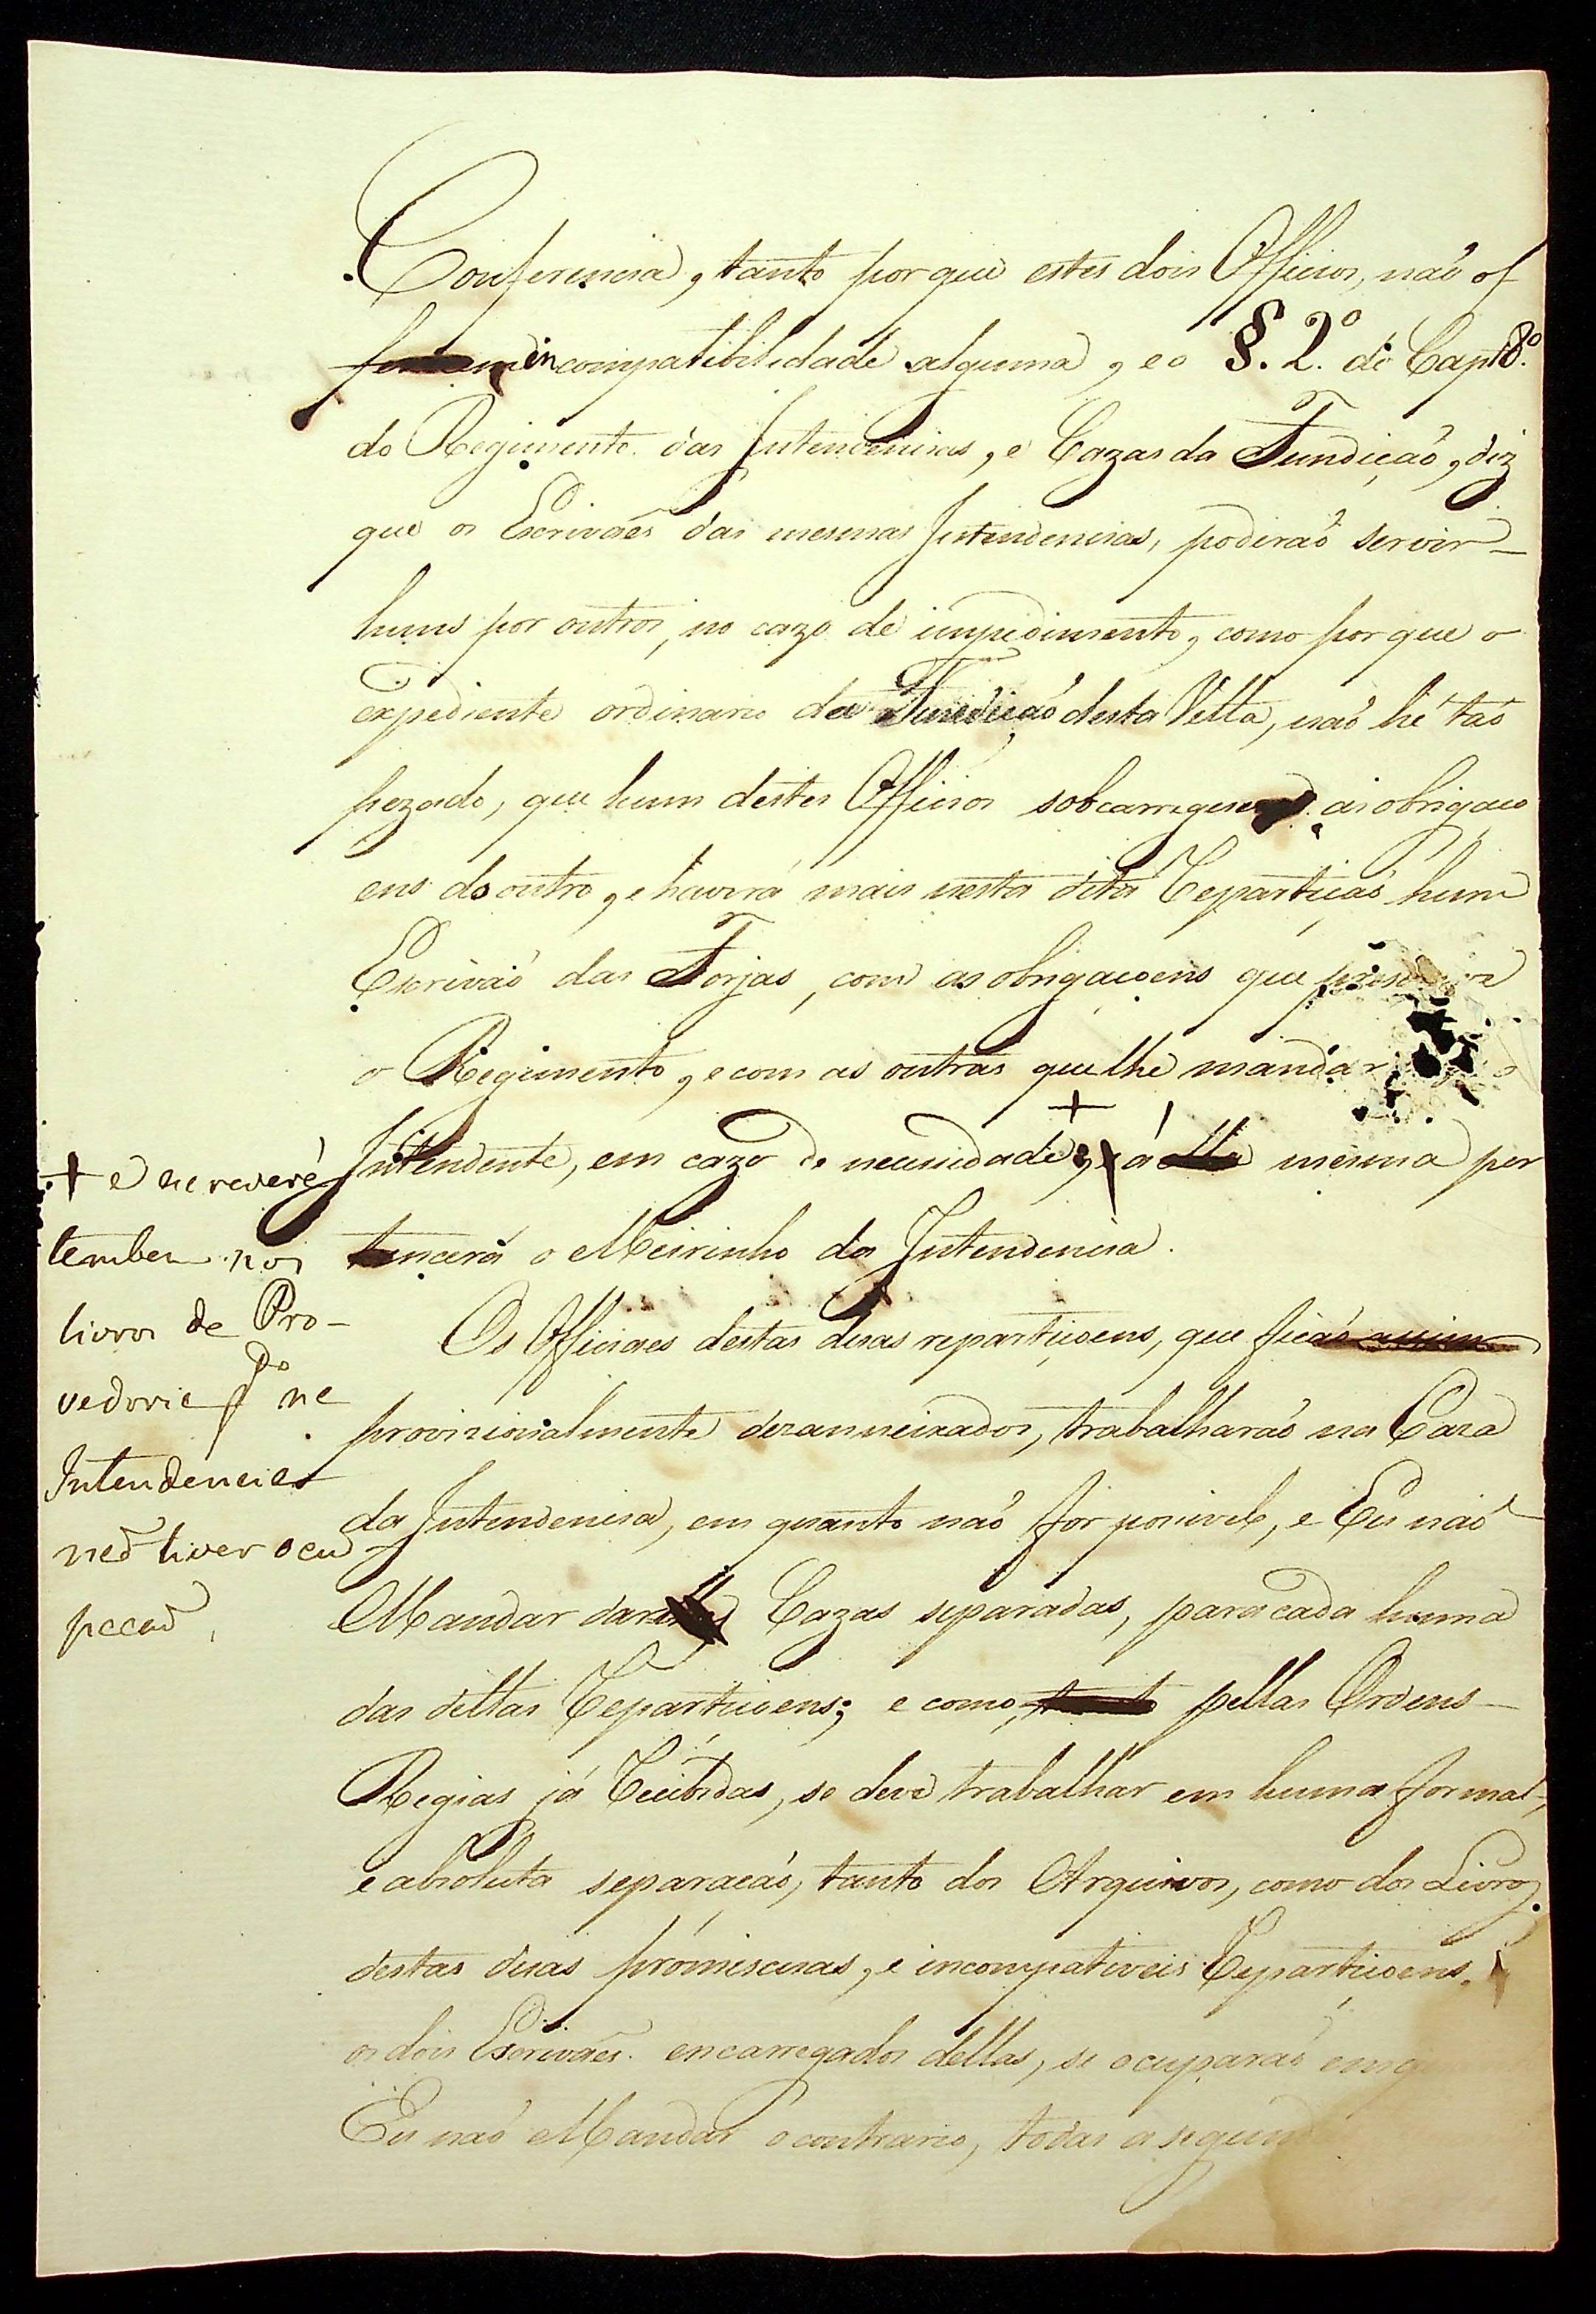 Conferencia, tanto por que estes dois Officios, naó of
incompatibilidade alguma, e o §. 2.º do Cap. 8.º
do Regimento das Intendencias, e Cazas da Fundiçaó, diz
que os Escrivães das mesmas Intendencias, poderaó servir
huns por outros, no cazo de impedimento, como por que o
expediente ordinario da Fundiçaó desta Villa, naó hé taó
pezado, que hum destes Officios sobcarregue as obrigaço
ens do outro, e haverá mais nesta dita Repartiçaó hum
Escrivaó das Forjas, com as obrigaçoens que
o Regimento, e com as outras que lhe mandar
Intendente, em cazo de necessidade, + e á mesma per
tencerá o Meirinho da Intendencia.
+ e escreverá
tambem nos
livros de Pro-
vedoria qdo na
Intendencia
naõ tiver ocu
paçaõ,
Os Officiaes destas duas repartiçoens, que ficaó assim
provizionalmente dezanneixados, trabalharaó na Caza
da Intendencia, em quanto naó for possivel, e Eu naó
Mandar dar Cazas separadas, para cada huma
das dittas Repartiçoens; e como pellas Ordens
Regias já Recibidas, se deve trabalhar em huma formal,
e absoluta separaçaó, tanto dos Arquivos, como dos Livros
destas duas promiscuas, e incompativeis Repartiçoens,
os dois Escrivães encarregados dellas, se ocuparaó em
Eu naó Mandar o contrario, todas a